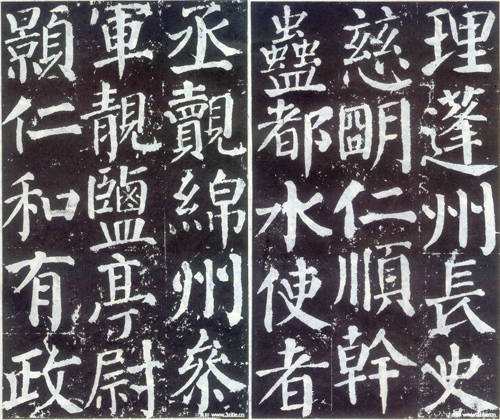 理蓬州長史
慈明仁順幹
蠱都水使者
丞覿綿州參
軍靚鹽亭尉
顥仁和有政